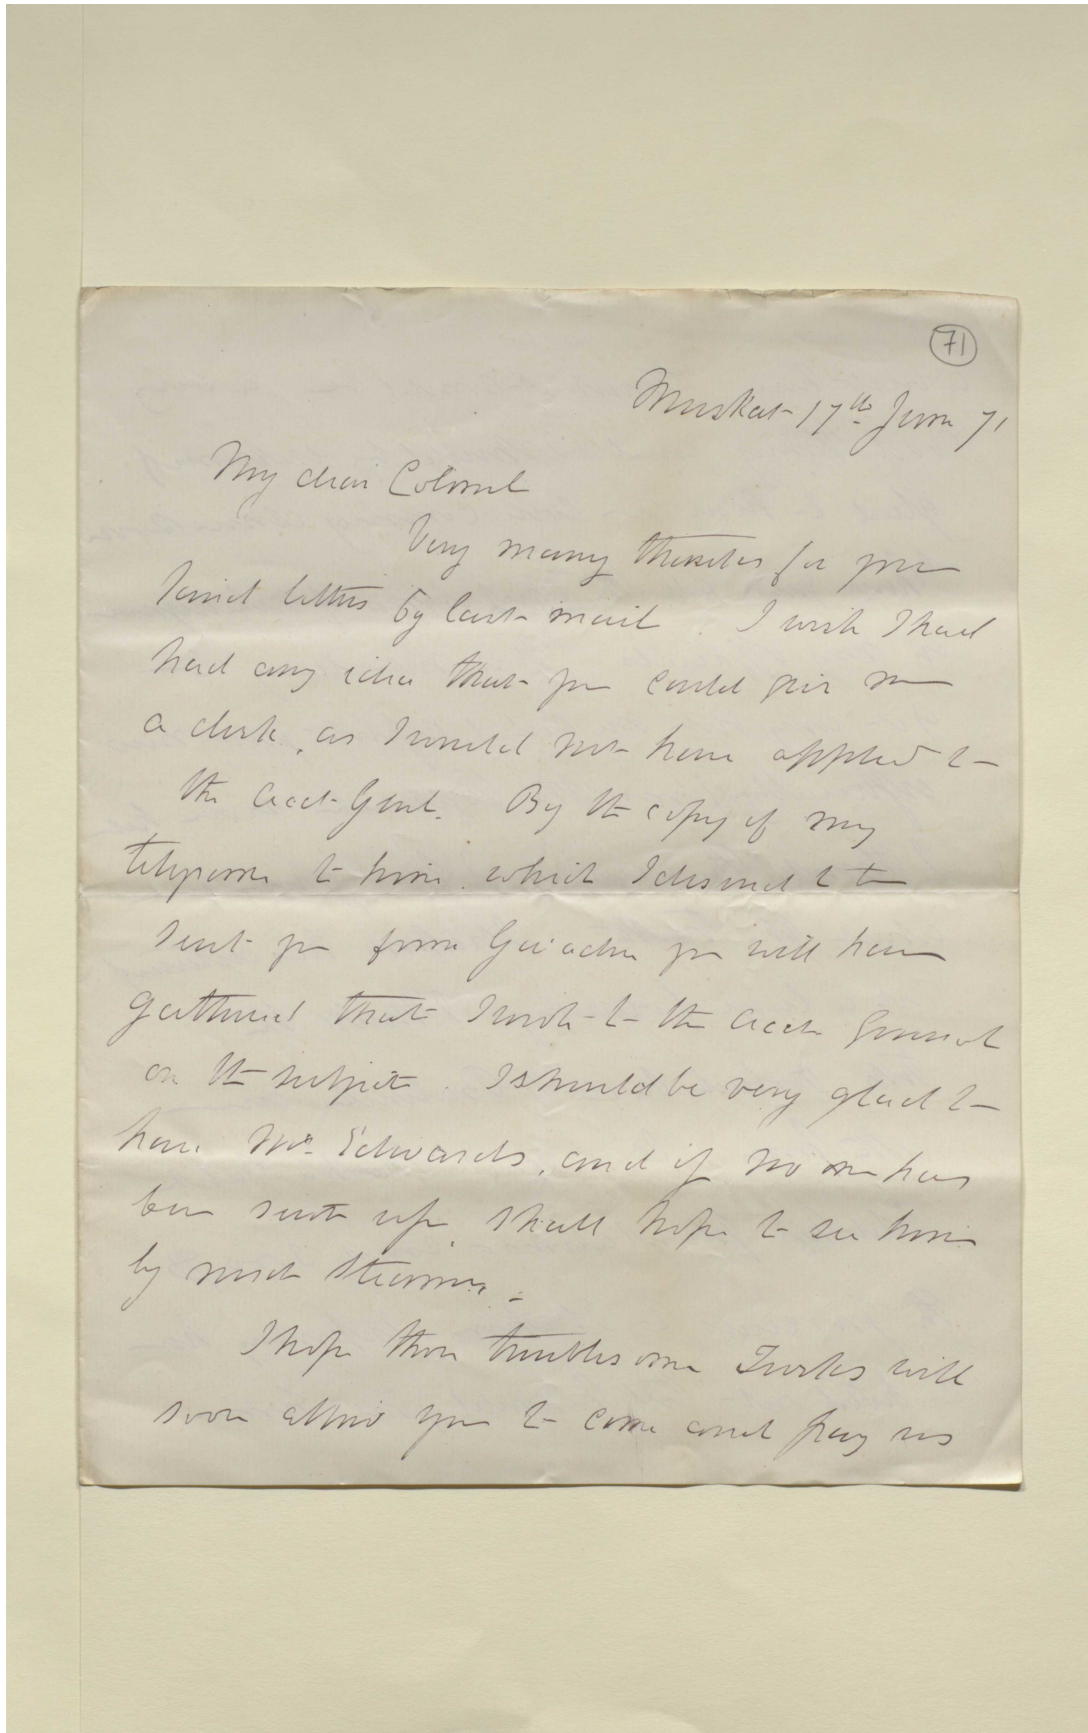 71
Muskat 17th June 71
My dear Colonel
Very many thanks for your
kind letters by last mail. I wish I had
had any idea that you could give me
a clerk, as I would not have applied to
the Acct Genl. By the copy of my
telegram to him which I desired to be
sent you from Gwadur you will have
gathered that I wrote to the Acct General
on the subject. I should be very glad to
have Mr. Edwards, and if no one has
been sent up, shall hope to see him
by next steamer.
I hope those troublesome Turks will
soon allow you to come and pay us